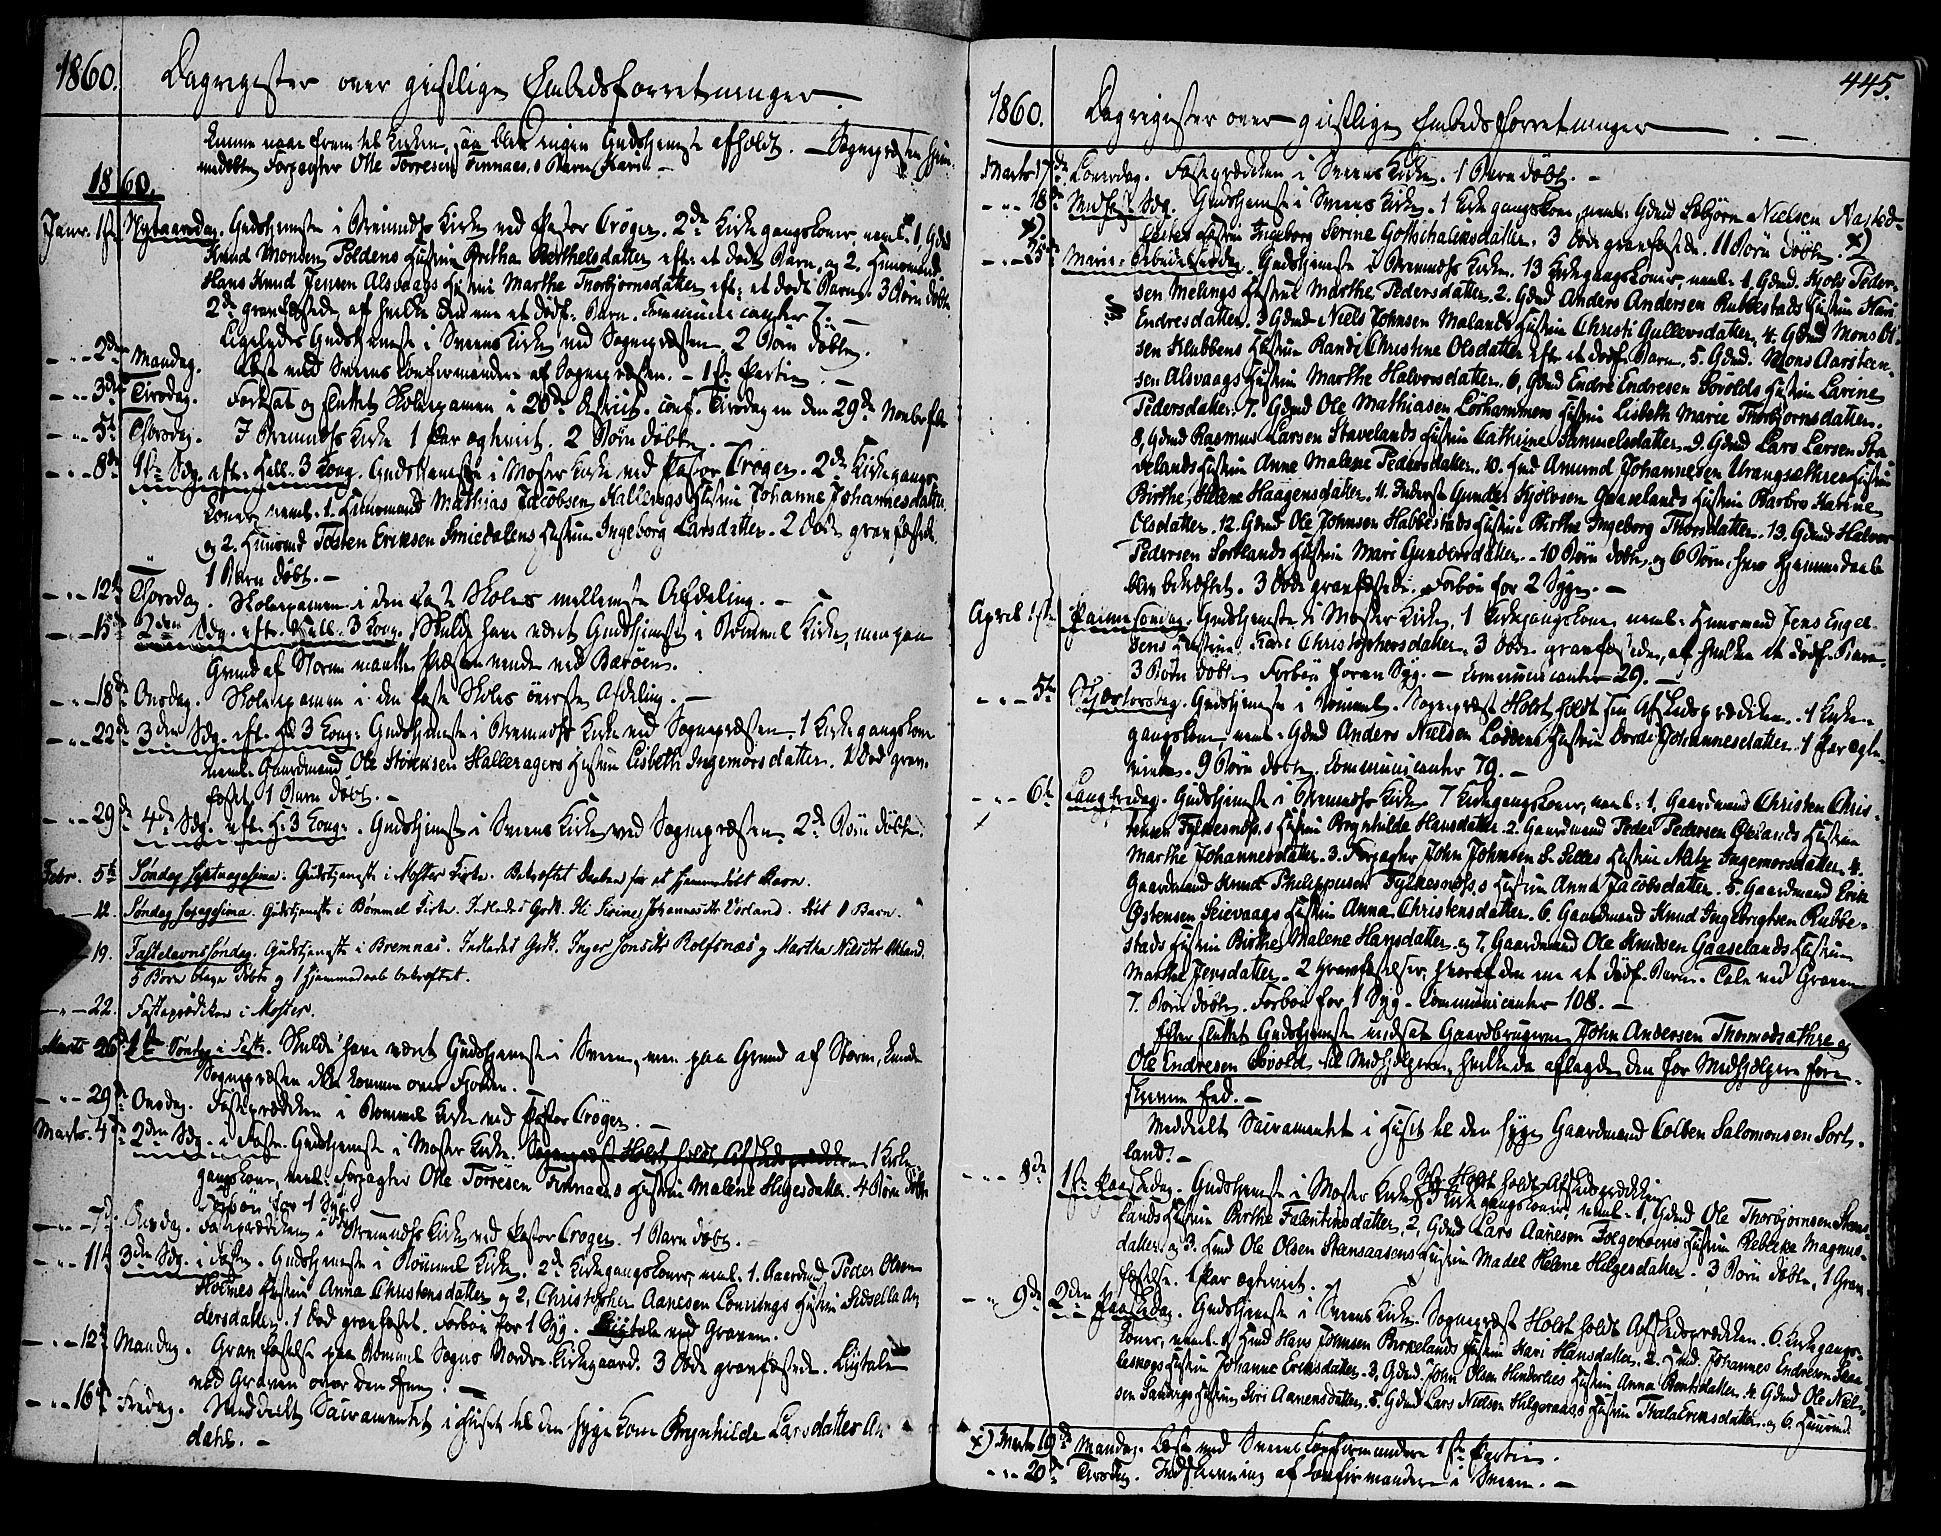 1860. Dagregister over geistlige Embedsforretninger.
kunne naae frem til Kirken, saa blev ingen Gudstjeneste afholdt. — Sognepræsten hjem-
medøbte Forpagter Olle Torresen Finnaas,s Barn Karin —
1860.
Janr. 1ste Nytaarsdag. Gudstjeneste i Bremnæss Kirke ved Pastor Crøger. 2de Kirkegangskoner, neml. 1, Gmd
Knud Monsen Poldens Hustru Bretha Berthelsdatter efter et dødt Barn, og 2. Huusmand
Hans Knud Jensen Alsvaags Hustru Marthe Thorbjørnsdatter eft. et dødt Barn. 3 Børn døbte
2de gravfæstede af hvilke den ene et dødf. Barn. Communicanter 7. —
Ligeledes Gudstjeneste i Sveens Kirke ved Sognepræsten 2 Børn døbte.
— " — 2den Mandag. Læst med Sveens Confirmander af Sognepræsten. — 1ste Partie. —
— " — 3die Tirsdag. Fortsat og sluttet Skoleexamen i 20de District. conf. Tirsdagen den 29de Novbr. f. A.
— " — 5te Thorsdag. I Bremnæss Kirke 1 Par ægteviet. 2 Børn døbte. —
— " — 8de 1ste Sdg. eft. Hell. 3 Kong. Gudstjeneste i Moster Kirke ved Pastor Crøger. 2de Kirkegangs-
koner, neml. 1. Huusmand Mathias Jacobsen Halleraas Hustru Johanne Johannesdatter
og 2. Huusmd Tosten Eriksen Smiedalens Hustru Ingeborg Larsdatter. 2 Døde gravfæstede
1 Barn døbt. —
— " — 12te Thorsdag. Skoleexamen i den faste Skoles mellemste Afdeling. —
— " — 15de 2den Sdg. eft. Hell. 3 Kong. Skulde have været Gudstjeneste i Bømmel Kirke, men paa
Grund af Storm maatte Præsten vende ved Barøen.
— " — 18de Onsdag. Skoleexamen i den faste Skoles øverste Afdeling. —
— " — 22de 3die Sdg. eft. Hl. 3 Kong. Gudstjeneste i Bremnæss Kirke ved Sognepræsten. 1 Kirkegangskone
neml. Gaardmand Ole Størksen Halleragers Hustru Lisbeth Ingemorsdatter. 1 Død grav-
fæstet, 1 Barn døbt. —
— " — 29de 4de Sdg. eft. H. 3 Kong. Gudstjeneste i Sveens Kirke ved Sognepræsten. 2de Børn døbte.
Febr. 5te Søndag Septuagesima. Gudstjeneste i Moster Kirke. Bekræftet Daaben for et hjemmedøbt Barn.
— 12. Søndag Sexagesima. Gudstjeneste i Bømmel Kirke. Indledet Grdk. Eli Serine Johannesdtr Vorland. Døbt 1 Barn.
— 19. Fastelavnssøndag. Gudstjeneste i Bremnæs. Indledet Grdk. Inger Jonsdtr Rolfsnæs og Martha Nilsdtr Økland.
5 Børn bleve døbte og 1 hjemmedaab bekræftet.
— " — 22. Fasteprædiken i Moster.
Marts 26de 1ste Søndag i Faste. Skulde have været Gudstjeneste i Sveen, men paa Grund af Storm, kunde
Sognepræsten ikke komme over Fjorden.
— " — 29de Onsdag. Fasteprædiken i Bømmel Kirke ved Pastor Crøger. —
Marts. 4de 2den Sdg. i Faste. Gudstjeneste i Moster Kirke. Sognepræst Holst holdt Afskedsprædiken 1 Kirke-
gangskone, neml. Forpagter Olle Torresen Finnaas Hustru Malene Helgesdatter. 4 Børn døbte
Forbøn for 1 Syg.
— " — 7de Onsdag. Fasteprædiken i Bremnæss Kirke ved Pastor Crøger. 1 Barn døbt.
— " — 11te 3die Sdg. i Fasten. Gudstjeneste i Bømmel Kirke. 2de Kirkegangskoner, neml. 1. Gaardmd Peder Olsen
Holmes Hustru Anna Christensdatter og 2, Christopher Aanesen Lønnings Hustru Sidsella An-
dersdatter. 1 Død gravfæstet. Forbøn for 1 Syg. Liigtale ved Graven.
— " — 12te Mandag. Gravfæstelse paa Bømmel Sogns Nordre-Kirkegaard. 3 Døde gravfæstede. Liigtale
ved Graven over den Ene. —
— " — 16de Fredag. Meddeelt Sacramentet i Huset til den syge Kone Brynhilde Larsdatter An-
dahl. —
445.
1860. Dagregister over geistlige Embedsforretninger — . —
Marts 17de Løverdag. Fasteprædiken i Sveens Kirke. 1 Barn døbt. —
— " — 18de Midfaste Sdg. Gudstjeneste i Sveens Kirke. 1 Kirkegangskone, neml. Gmd Esbjørn Nielsen Aasted-
x). leites Hustru Ingeborg Serine Gottschalksdatter. 3 Døde gravfæstede. 11 Børn døbte. x)
— " — 25de Mariæ Bebudelsesdag. Gudstjeneste i Bremnæss Kirke. 13 Kirkegangskoner, neml. 1. Gdmd. Kjols Peder-
sen Melings Hustru Marthe Pedersdatter, 2. Gdmd Anders Andersen Rubbestads Hustru Kari
Endresdatter. 3 Gdmd Niels Johnsen Malands Hustru Christi Gulleivsdatter, 4. Gdmd Mons Ol-
sen Klubbens Hustru Randi Christine Olsdatter efter et dødf. Barn, 5. Gdmd. Mons Aarsteen-
sen Alsvaags Hustru Marthe Halvorsdatter. 6, Gdmd Endre Endresen Sovolds Hustru Larine
Pedersdatter. 7. Gdmd Ole Mathiasen Lorhammers Hustru Lisbeth Marie Thorbjørnsdatter.
8, Gdmd Rasmus Larsen Stavelands Hustru Cathrine Samuelsdatter. 9. Gdmd Lars Larsen Sta-
velands Hustru Anne Malene Pedersdatter. 10. Hmd Amund Johannesen Urangsæthres Hustru
Birthe Helene Haagensdatter, 11. Inderst Gunder Kjolvsen Gaaselands Hustru Barbro Karine
Olsdatter. 12. Gdmd Ole Johnsen Habbestads Hustru Birthe Ingeborg Thorsdatter. 13. Gdmd Halvor
Pedersen Sortlands Hustru Mari Gundersdatter. — 10 Børn døbte, og 6 Børns Hjemmedaab
blev bekræftet. 3 Døde gravfæstede. Forbøn for 2 Syge. —
April 1ste Palmesøndag. Gudstjeneste i Moster Kirke, 1 Kirkegangskone, neml. Huusmand Jens Engel-
sens Hustru Kari Christophersdatter. 3 Døde gravfæstede, af hvilke et dødf. Barn.
3 Børn døbte. Forbøn for en Syg. — Communicanter 29. —
— " — 5te Skjærtorsdag. Gudstjeneste i Bømmel. Sognepræst Holst holdt sin Afskedsprædiken. 1 Kirke-
gangskone, neml. Gdmd Anders Nielsen Løddens Hustru Dorde Johannesdatter. 1 Par ægte-
viede. 9 Børn døbte. Communicanter 79. —
— " — 6te Langfredag. Gudstjeneste i Bremnæss Kirke. 7 Kirkegangskoner, neml. 1, Gaardmand Christen Chris-
tensen Fylkesnæs,s Hustru Brynhilde Hansdatter. 2. Gaardmand Peder Pedersen Øklands Hustru
Marthe Johannesdatter. 3. Forpagter John Johnsen S. Selles Hustru Altz Ingemorsdatter. 4.
Gaardmand Knud Philippusen Fylkesnæs,s Hustru Anna Jacobsdatter. 5. Gaardmand Erik
Østensen Seievaags Hustru Anna Christensdatter. 6. Gaardmand Knud Ingebrigtsen Rubbe-
stads Hustru Birthe Malene Hansdatter og 7, Gaardmand Ole Knudsen Gaaselands Hustru
Marthe Jensdatter. 2 Gravfæstelser, hvoraf den ene et dødf. Barn. Tale ved Graven
7. Børn døbte. Forbøn for 1 Syg. — Communicanter 108. —
Efter sluttet Gudstjeneste indsat Gaardbrugerne John Andersen Thormodsæthre og
Ole Endresen Sovold til Medhjelpere, hvilke da aflagde den for Medhjelpere fore-
skrevne Eed. —
Meddeelt Sacramentet i Huset til den syge Gaardmand Colben Salomonsen Sort-
land. —
— " — 8de 1ste Paaskedag. Gudstjeneste i Moster Kirke Sgpr. Holst holdt Afskedsprædiken
3 Kirkegangskoner, neml. 1, Gdmd Ole Thorbjørnsen
lands Hustru Birthe Falentinsdatter, 2, Gdmd Lars Aanesen Folgerøens Hustru Rebekke Magnus-
datter og 3. Hmd Ole Olsen Stensaasens Hustru Madel Helene Helgesdatter. 3 Børn døbte, 1 Grav-
fæstelse. 1 Par ægteviet. —
— " — 9de 2den Paaskedag. Gudstjeneste i Sveens Kirke. Sognepræst Holst holdt Afskedsprædiken. 6 Kirkegangs-
koner, neml. 1 Hmd Hans Johnsen Birkelands Hustru Kari Hansdatter. 2. Hmd. Johannes Endresen
leskogs Hustru Johanne Eriksdatter. 3, Gdmd. John Olsen Hinderlies Hustru Anna Bentsdatter. 4. Gdmd Ole Niel-
sen Sandvigs Hustru Siri Aanensdatter. 5. Gdmd Lars Nielsen Helgeraas,s Hustru Thala Eriksdatter. og 6. Huusmd.
x) Marts 19de Mandag. Læst med Sveens Confirmander 1ste Partie.
— " — 20de Tirsdag. Indskrivning af Confirmander i Sveen. —